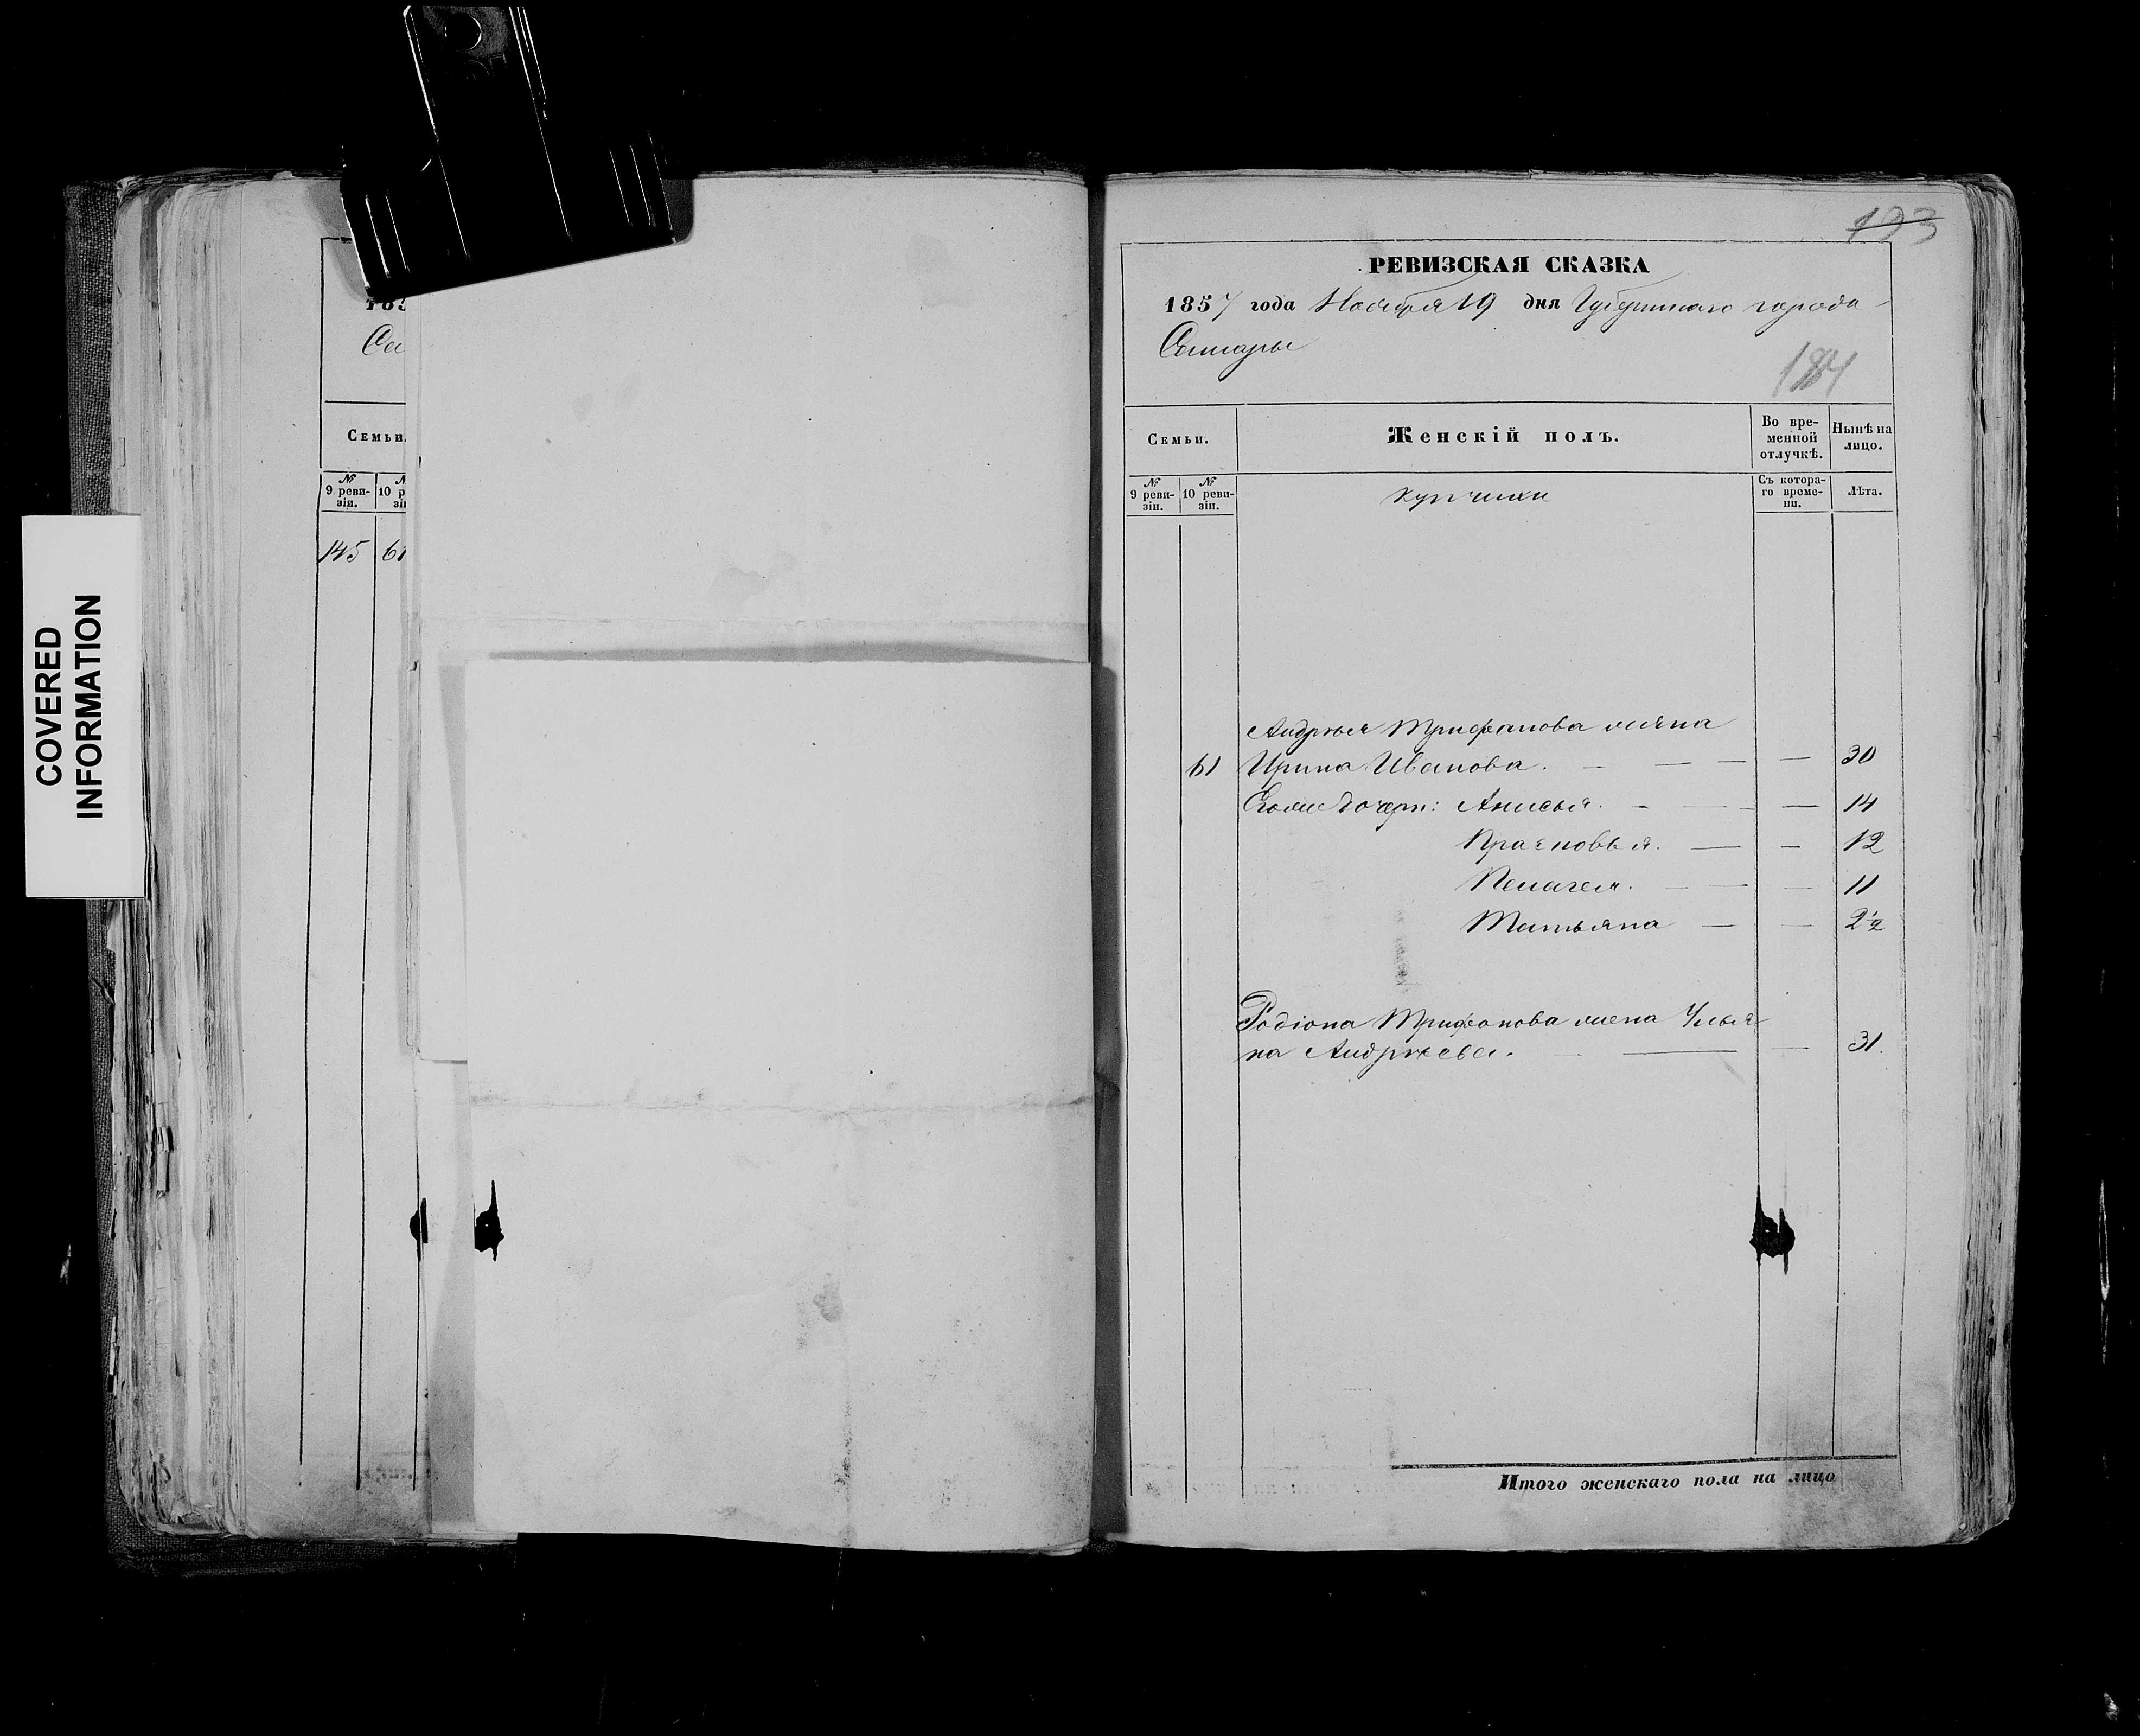 COVERED
INFORMATION
185
Са
Семьи.
№
9 реви-
зіи.
10 р
зіи
145 61
193
РЕВИЗСКАЯ СКАЗКА
1857 года Ноября 19 дня Губернскаго города
Самары
184
Семьи.
Женскій полъ.
Во вре-
менной
отлучкѣ.
Нынѣ на
лицо.
№
9 реви-
зіи.
№
10 реви-
зіи.
Съ котора-
го време-
ни.
Лѣта.
купчихи
Андрея Трифанова жена
61 Ирина Иванова. — — — — 30
дочери: Анисья. — — — 14
Прасковья. — — 12
Пелагея. — — — 11
Татьяна — — 2½
Родіона Трифонова жена Улья-
на Андреева. — — — 31.
Итого женскаго пола на лицо